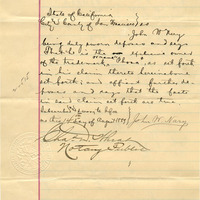 State of California
City & County of San Francisco } ss
John W. Nary
being duly sworn deposes and says
that he is the owner
of the trademark as set forth
in his claim thereto hereinabove
set forth; and affiant further de-
poses and says that the facts
in said claim set forth are true
Subscribed & sworn to before
me this day of } John W. Nary
Notary Public